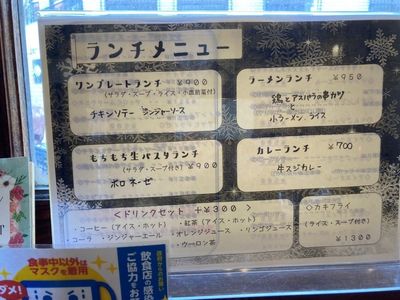 ランチメニュー
ワンプレートランチ ￥900
(サラダ・スープ・ライス・小鉢前菜付)
チキンソテー ジンジャーソース
ラーメンランチ ￥950
鶏とアスパラの串カツ
と
小ラーメン ライス
もちもち生パスタランチ
(サラダ・スープ付き) ￥900
ボロネーゼ
カレーランチ ￥700
牛スジカレー
<ドリンクセット +￥300>
・コーヒー(アイス・ホット) ・紅茶(アイス・ホット)
・コーラ ・ジンジャーエール ・オレンジジュース ・リンゴジュース
・ウーロン茶
◇カキフライ
(ライス・スープ付き)
￥1300
食事中以外は
マスクを着用
ダメ!
飲食店の感染
ご協力をお